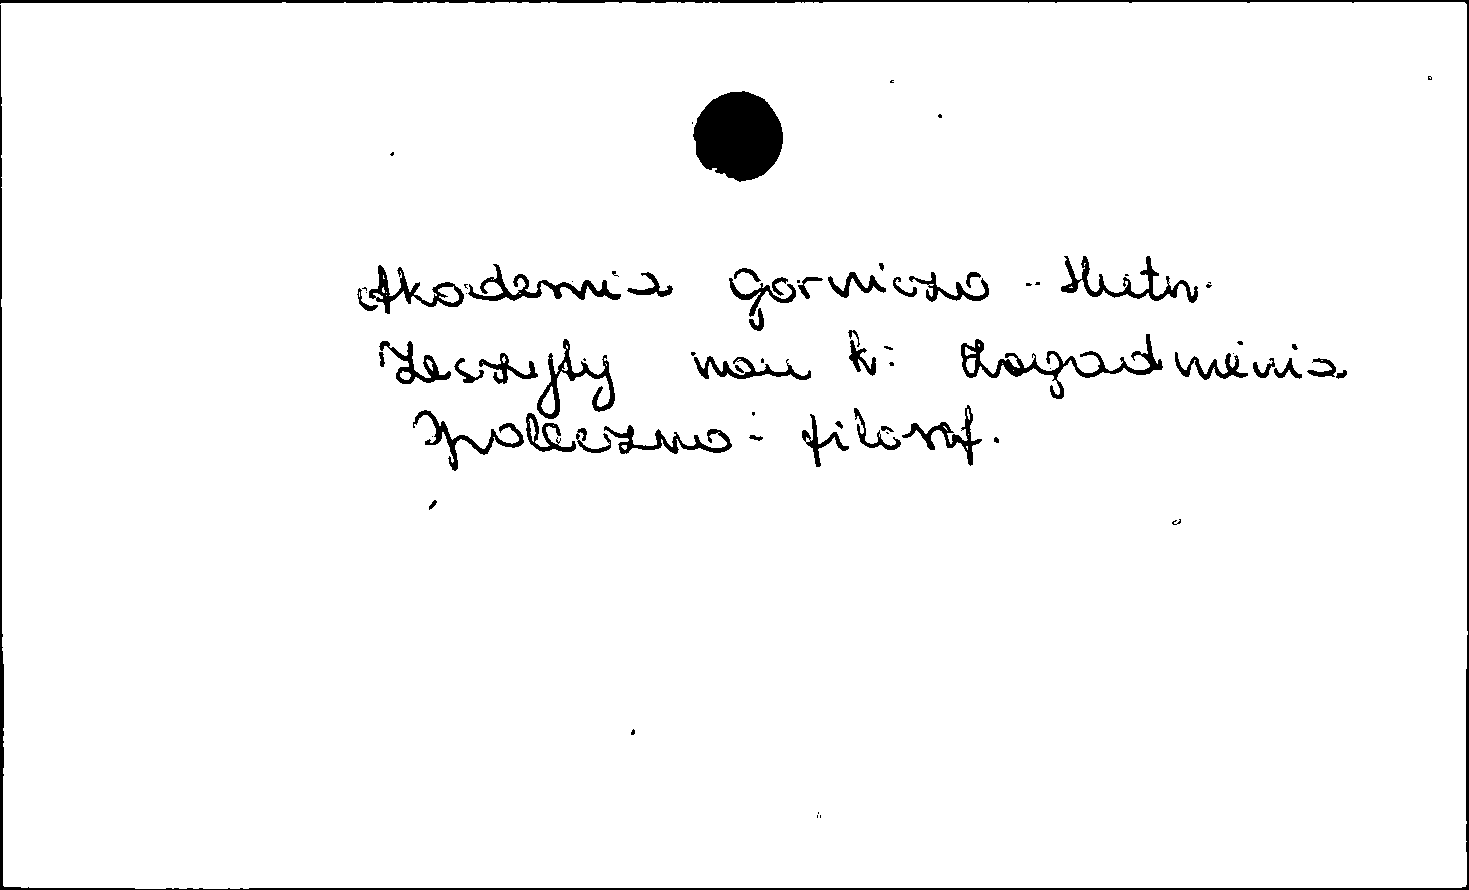 Akademia Gorniczo - Hutn.
Zeszyty nauk: Zagadnienia
Spoleczno - filosof.